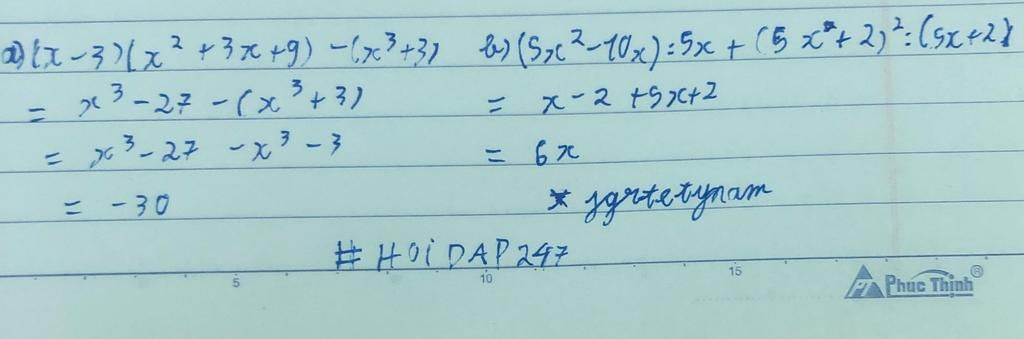 a) (x - 3)(x² + 3x + 9) - (x³ + 3)
= x³ - 27 - (x³ + 3)
= x³ - 27 - x³ - 3
= -30
b) (5x² - 10x) : 5x + (5x + 2)² : (5x + 2)
= x - 2 + 5x + 2
= 6x
* jgrtetynam
# HOiDAP247
5 10 15
Phuc Thinh®